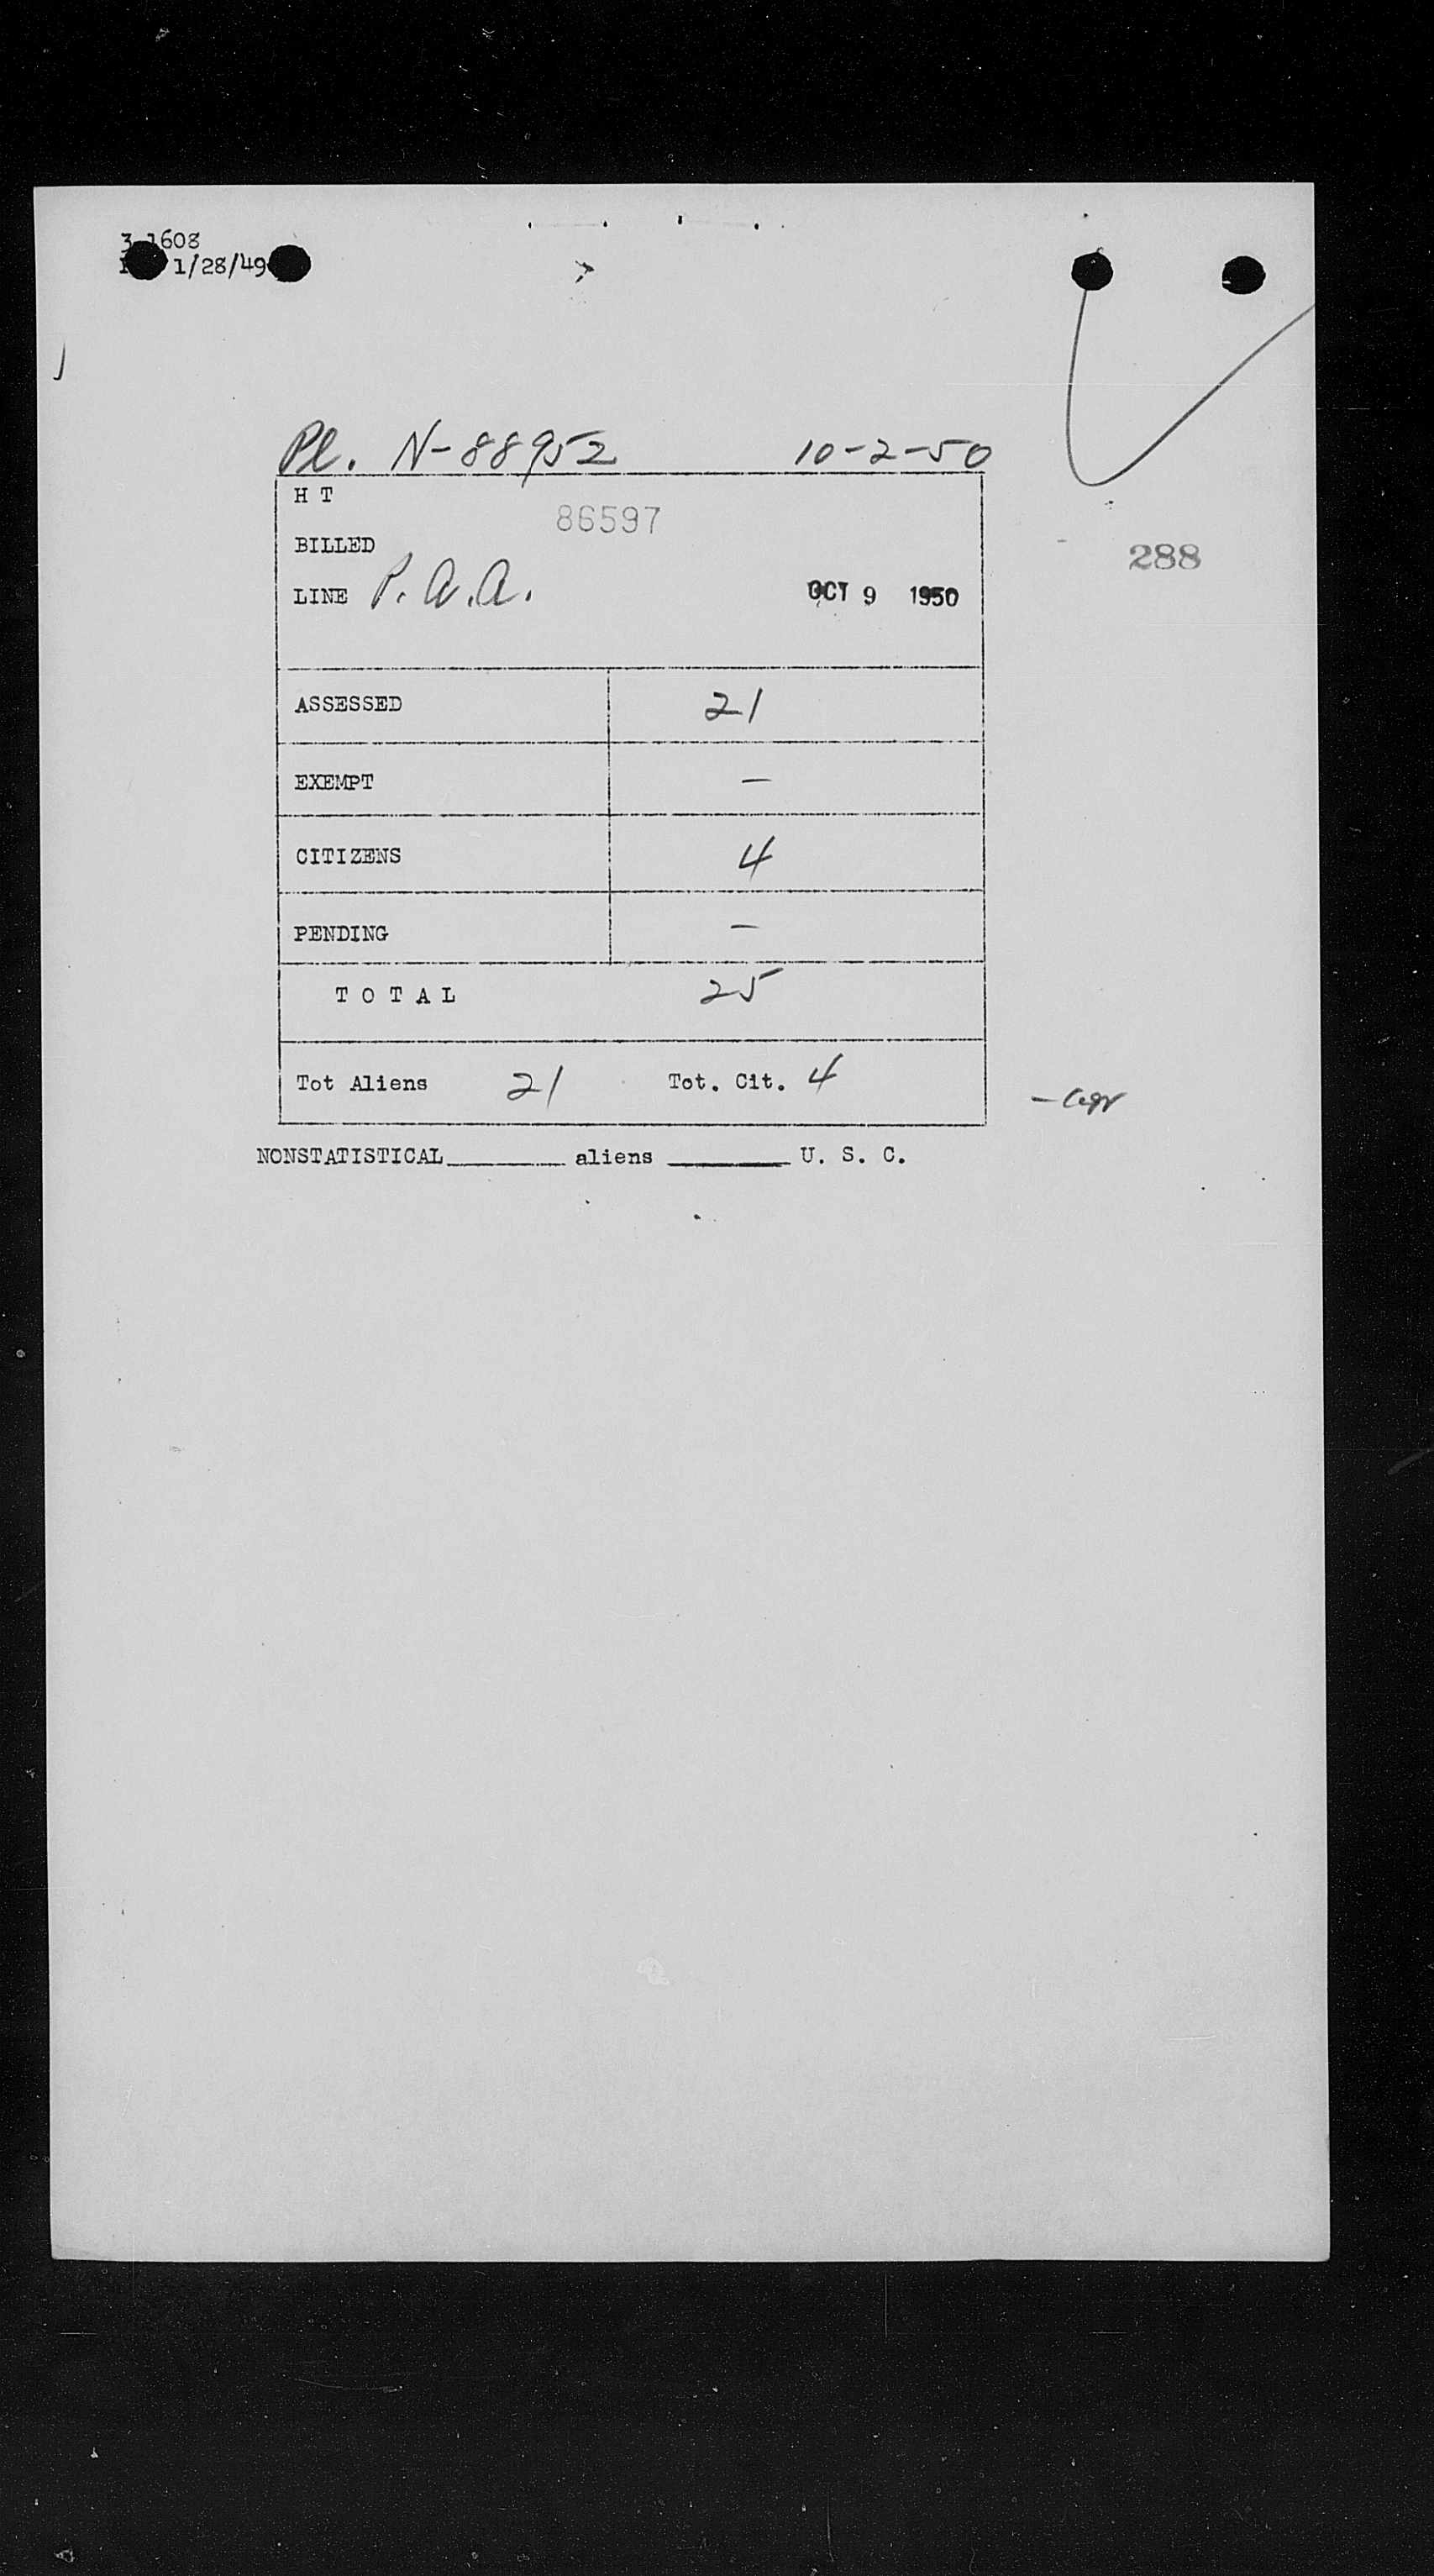 3-1608
1/28/49
Pl. N-88952 10-2-50
H T
86597
BILLED
288
LINE P.A.A. OCT 9 1950
ASSESSED 21
EXEMPT —
CITIZENS 4
PENDING —
T O T A L 25
Tot Aliens 21 Tot. Cit. 4
NONSTATISTICAL__________ aliens __________ U. S. C.